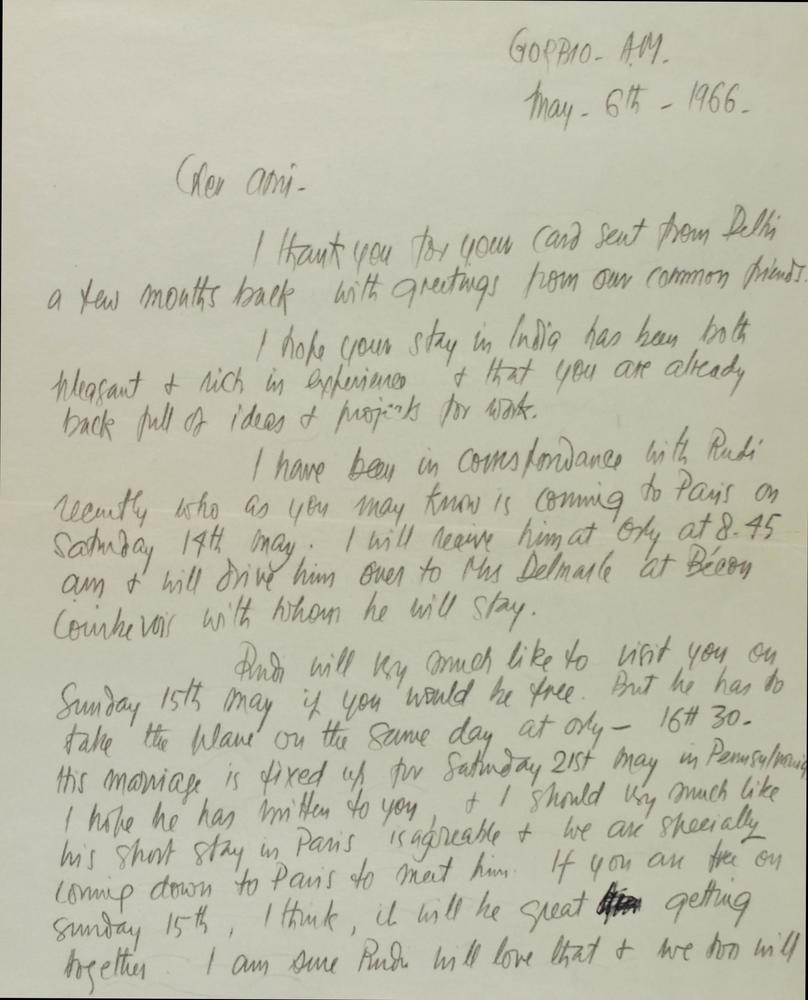 GORBIO - A.M.
May - 6th - 1966 -
Cher ami -
I thank you for your card sent from Delhi
a few months back with greetings from our common friends.
I hope your stay in India has been both
pleasant & rich in experience & that you are already
back full of ideas & projects for work.
I have been in correspondance with Rudi
recently who as you may know is coming to Paris on
Saturday 14th May. I will receive him at orly at 8.45
am & will drive him over to Mrs Delmarle at Bécon
Courbevois with whom he will stay.
Rudi will very much like to visit you on
Sunday 15th may if you would be free. But he has to
take the plane on the same day at orly - 16H 30 -
His marriage is fixed up for Saturday 21st may in Pennsylvania
I hope he has written to you, & I should very much like
his short stay in Paris is agreable & we are specially
coming down to Paris to meet him. If you are free on
Sunday 15th, I think, it will be great getting
together. I am sure Rudi will love that & we too will